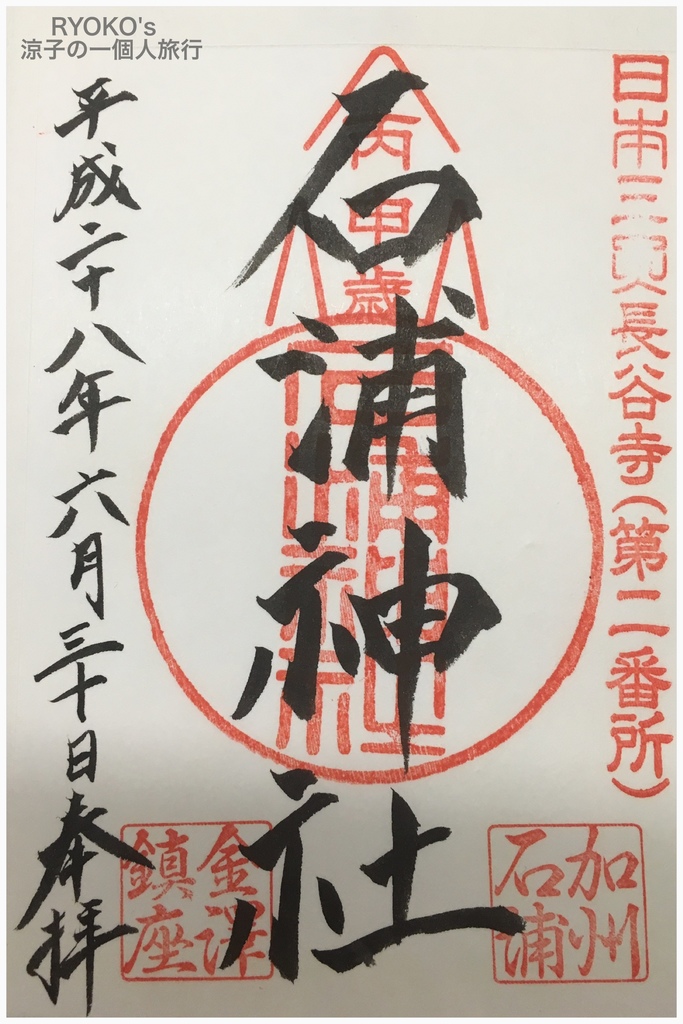 RYOKO's
涼子の一個人旅行
日本三所長谷寺(第二番所)
丙申歳
石浦神社
加州
石浦
金澤
鎮座
平成二十八年六月三十日奉拝